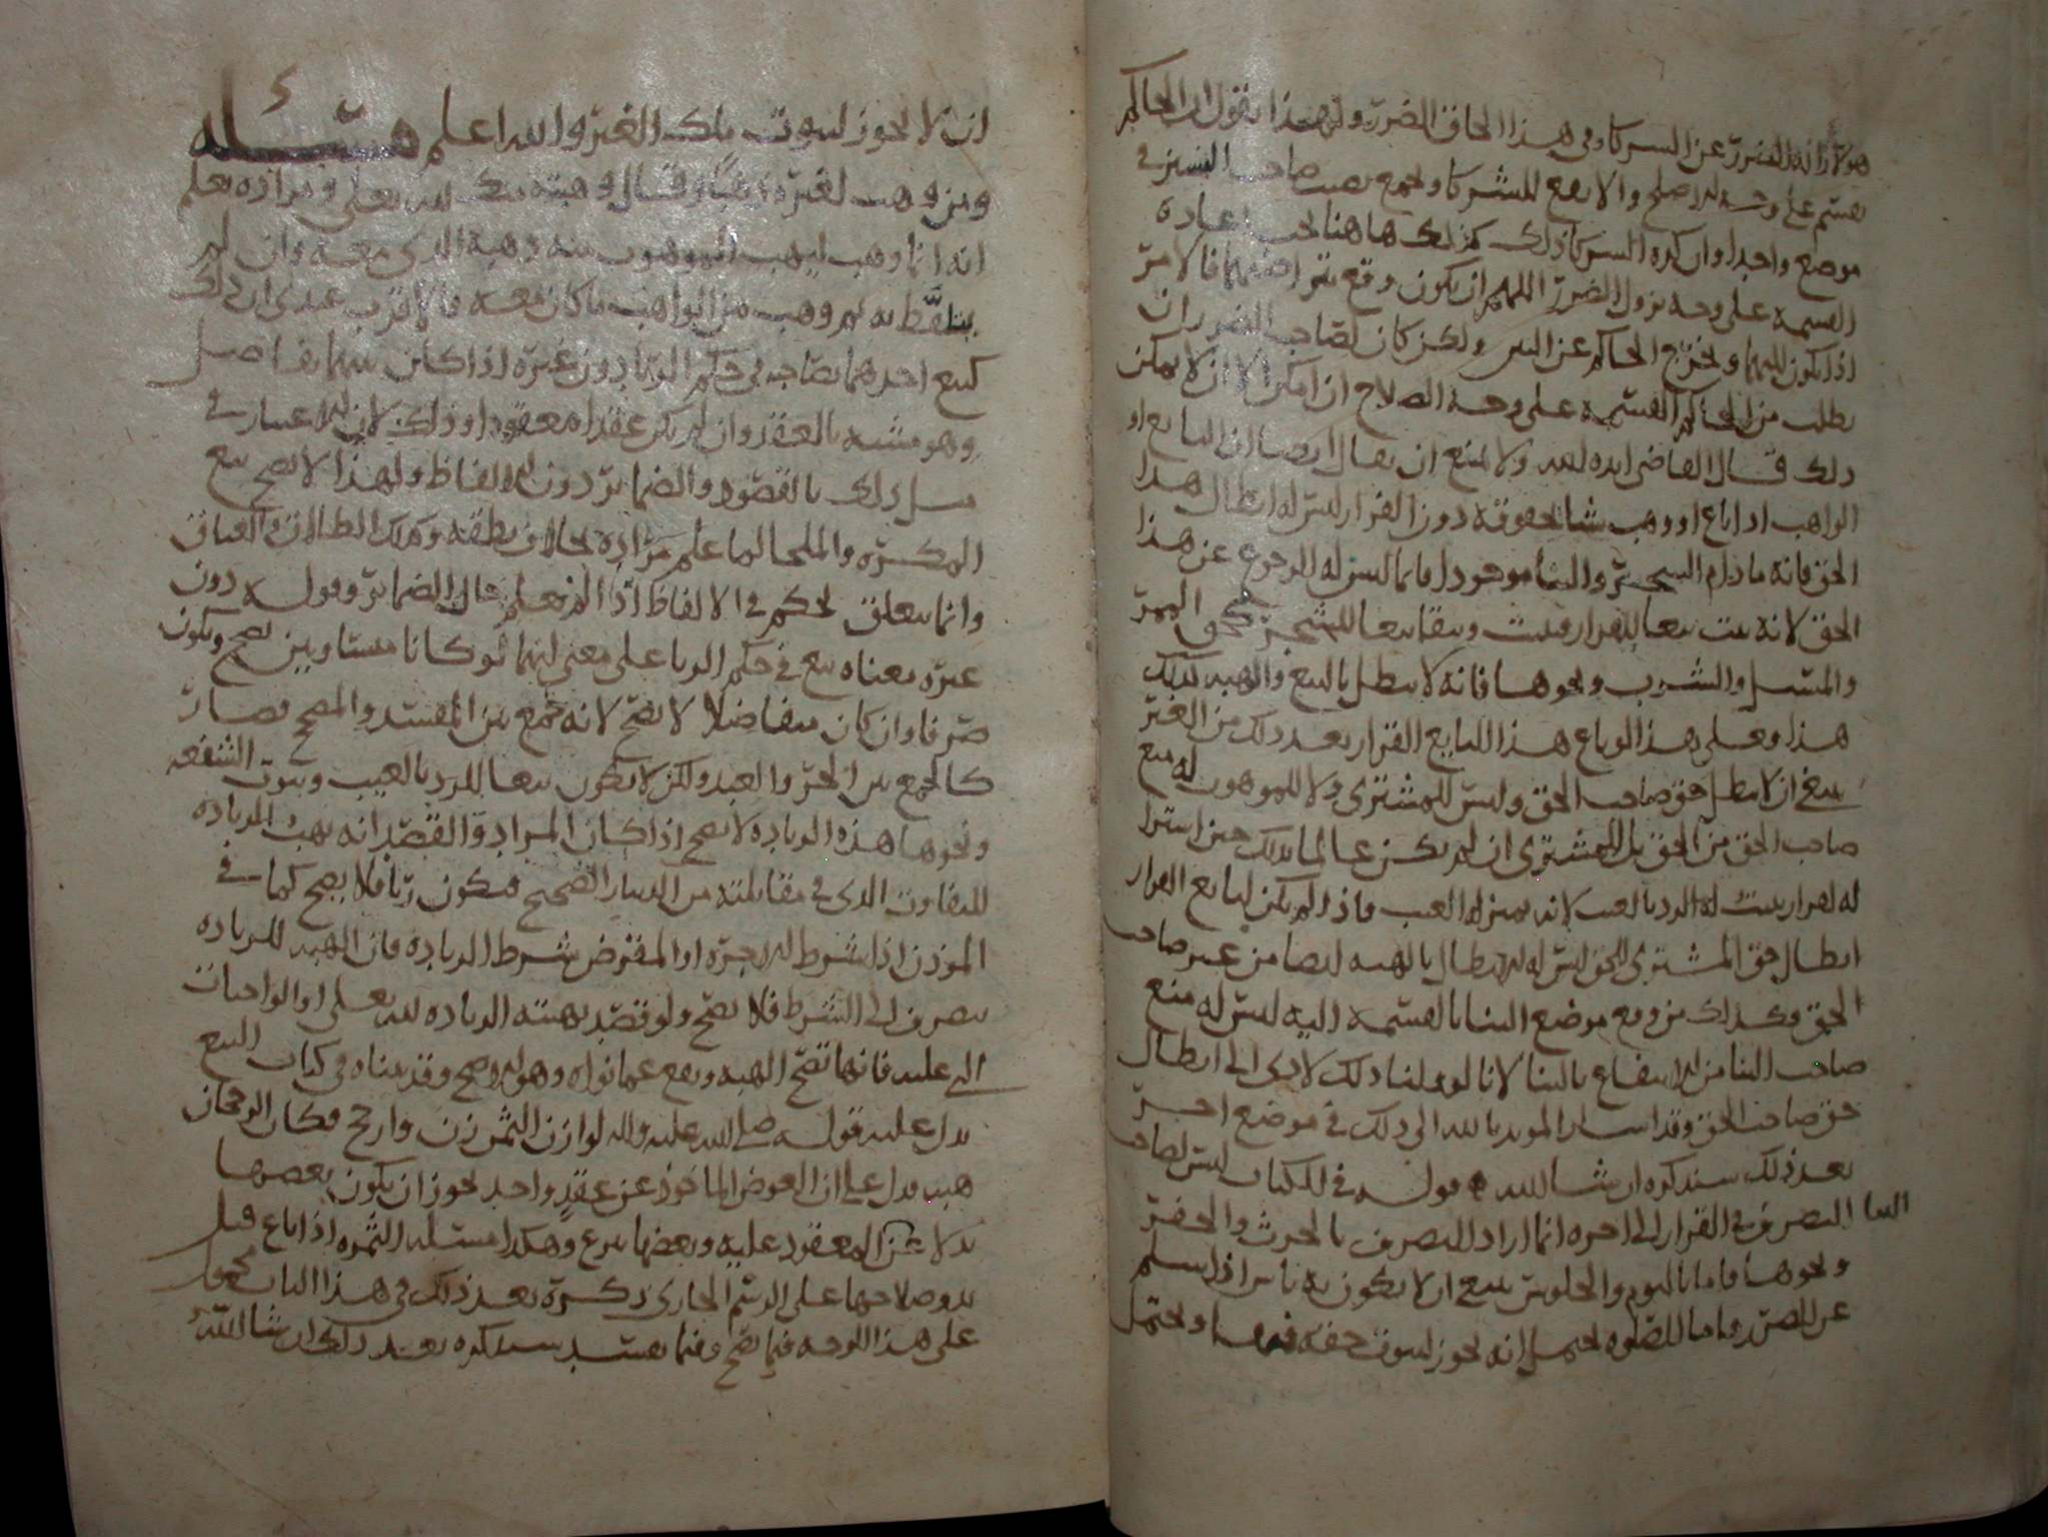 هو لازالة الضرر عن الشركا وفي هذا الحاق الضرر ولهذا نقول ان الحاكم
يقسم على وجه الاصلح والانفع للشركا ويجمع نصيب صاحب اليسير في
موضع واحد وان كره الشركا ذلك كذلك هاهنا يجب اعادة
القسمة على وجه يزول الضرر اللهم ان يكون وقع بتراضيهما فالامر
اذا يكون اليهما ويخرج الحاكم عن البين ولكن كان لصاحب الضرر ان
يطلب من الحاكم القسمة على وجه الصلاح ان امكن الا ان لا يمكن
ذلك قال القاضي ايده الله ولا يمتنع ان يقال ايضا ان البايع او
الواهب اذا باع او وهب شيا بحقوقه دون القرار ليس له ابطال هذا
الحق فانه ما دام الشجر والبنا موجودا قايما ليس له الرجوع عن هذا
الحق لانه يثبت تبعا للقرار ويبقا تبعا للشجر كحق الممر
والمسيل والشرب ونحوها فانه لا يبطل بالبيع والهبة كذلك
هذا وعلى هذا لو باع هذا البايع القرار بعد ذلك من الغير
ينبغي ان لا يبطل حق صاحب الحق وليس للمشتري ولا للموهوب له منع
صاحب الحق من الحق بل للمشتري ان لم يكن عالما بذلك حين اشترا
له القرار يثبت له الرد بالعيب لانه بمنزلة العيب واذا لم يكن لبايع القرار
ابطال حق المشتري للحق ليس له الابطال بالهبة ايضا من غير صاحب
الحق وكذلك من وقع موضع البنا بالقسمة اليه ليس له منع
صاحب البنا من الانتفاع بالبنا لانا لو قلنا ذلك لادى الى ابطال
حق صاحب الحق وقد اشار المويد بالله الى ذلك في موضع اخر
بعد ذلك سنذكره ان شا الله قوله في الكتاب ليس لصاحب
البنا التصرف في القرار الى اخره انما اراد التصرف بالحرث والحفر
ونحوها فاما بالنوم والجلوس ينبغي ان لا يكون به باس اذا سلم
عن الضرر واما الصلوة يحتمل انه يجوز لثبوت حقه فيها ويحتمل
ان لا يجوز لثبوت ملك الغير والله اعلم مسئلة
ومن وهب لغيره ذهبا وقال وهبته منك لله تعالى ومراده يعلم
انه انما وهب ليهب الموهوب منه ذهبه الذي معه وان لم
يتلفظ به ثم وهب من الواهب ما كان معه فالاقرب عندي ان ذلك
كبيع احدهما بصاحبه في حكم الربا دون غيره اذا كان بينهما تفاضل
وهو مشبه بالعقد وان لم يكن عقدا معقودا وذلك لان الاعتبار في
مثل ذلك بالقصود والضماير دون الالفاظ ولهذا لا يصح بيع
المكره والملجا لما علم مراده بخلاف نطقه وكذلك الطلاق والعتاق
وانما يتعلق الحكم في الالفاظ اذا لم نعلم حال الضماير وقوله دون
غيره معناه بيع في حكم الربا على معنى انهما لو كانا متساويين يصح ويكون
صرفا وان كان متفاضلا لا يصح لانه جمع بين المفسد والمصحح فصار
كالجمع بين الحر والعبد ولكن لا يكون بيعا للرد بالعيب وثبوت الشفعة
ونحوها هذه الزيادة لا يصح اذا كان المراد والقصد انه يهب الزيادة
للتفاوت الذي في مقابلته من الدينار الصحيح فيكون ربا فلا يصح كما في
الموذن اذا شرط الاجرة او المقرض شرط الزيادة فان الهبة للزيادة
ينصرف الى الشرط فلا يصح ولو قصد بهبته الزيادة لله تعالى او الواجبات
التي عليه فانها تصح الهبة ويقع عما نواه وهو الاصح وقد بيناه في كتاب البيع
يدل عليه قوله صلى الله عليه واله لوازن الثمن زن وارجح فكان الرجحان
هبة يدل على ان العوض الماخوذ عن عقد واحد يجوز ان يكون بعضها
بدلا عن المعقود عليه وبعضها تبرع وهكذا مسئلة الثمرة اذا باع قبل
بدو صلاحها على الرسم الجاري ذكره بعد ذلك في هذا الباب محمول
على هذا الوجه فيما يصح وفيما يفسد سنذكره بعد ذلك ان شا الله